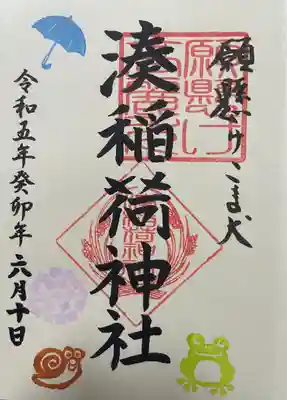 願懸けこま犬
湊稲荷神社
令和五年癸卯年六月十日